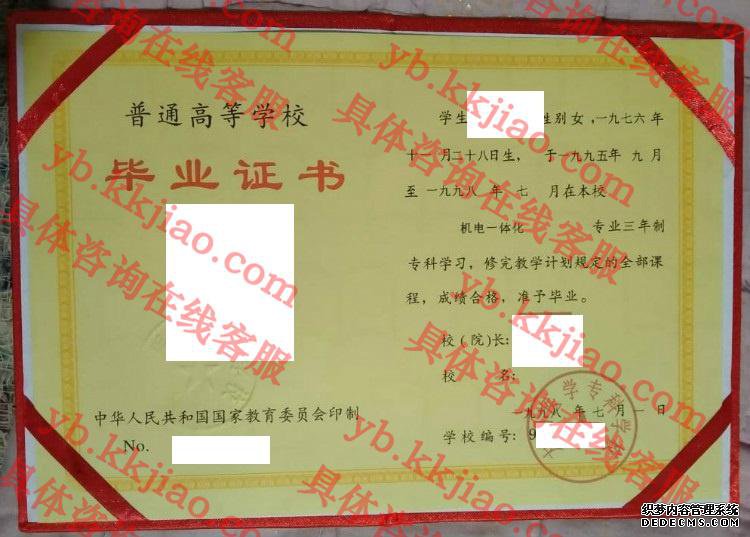 普通高等学校
毕业证书
中华人民共和国国家教育委员会印制
No.
学生 性别女,一九七六年
十一月二十八日生, 于一九九五年 九月
至一九九八年 七 月在本校
机电一体化 专业三年制
专科学习,修完教学计划规定的全部课
程,成绩合格,准予毕业。
校(院)长:
校 名:
一九九八年七月一日
学校编号: 9
学专科学校
yb.kkjiao.com
具体咨询在线客服
yb.kkjiao.com
具体咨询在线客服
yb.kkjiao.com
具体咨询在线客服
yb.kkjiao.com
具体咨询在线客服
yb.kkjiao.com
具体咨询在线客服
yb.kkjiao.com
具体咨询在线客服
织梦内容管理系统
DEDECMS.COM